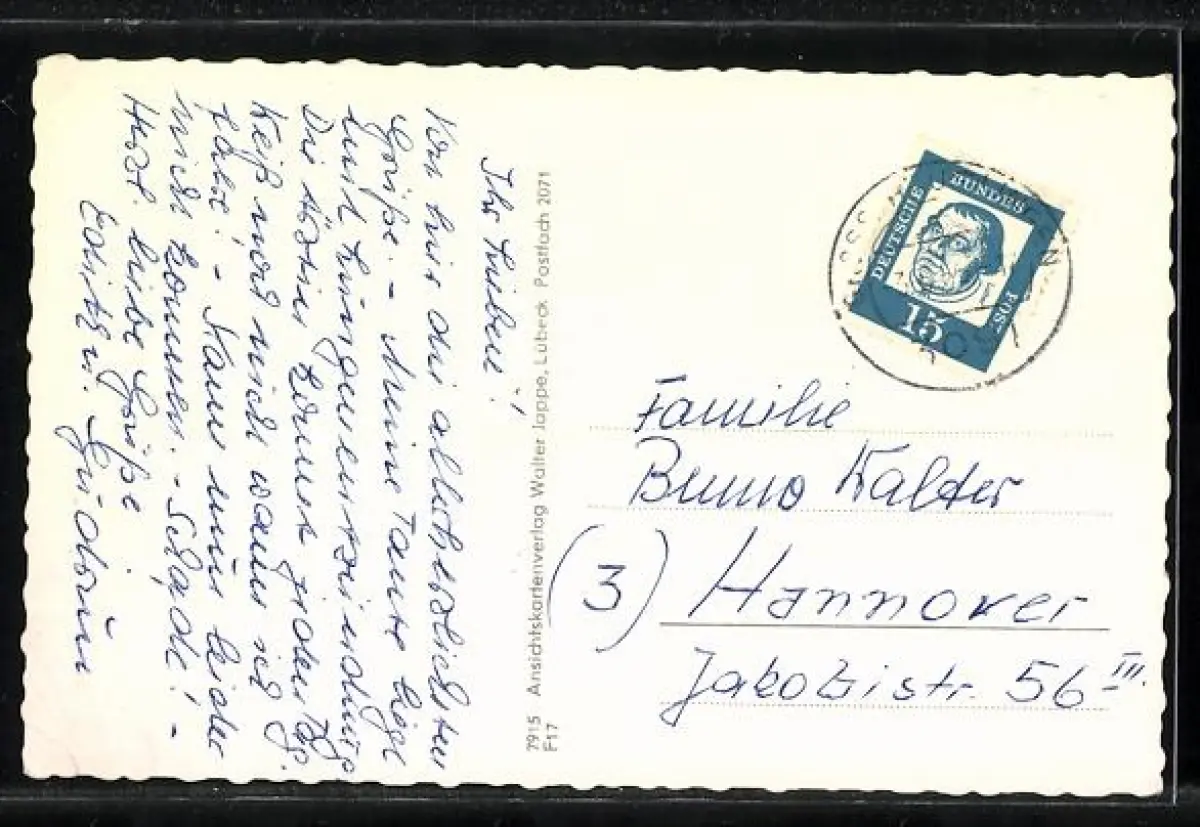 Ihr Lieben!
Von hier die allerherzlichsten
Grüße. - Meine Tante liegt
mit Lungenentzündung
Die Ärztin kommt jeden Tg.
Weiß noch nicht wann ich
fahre! - Kann nun leider
nicht kommen. - Schade! -
Herzl. liebe Grüße
Edith u. Gudrun
7915 Ansichtskartenverlag Walter Jappe, Lübeck Postfach 2071
F17
DEUTSCHE BUNDESPOST
15
Familie
Bruno Walter
(3) Hannover
Jakobistr. 56 III.